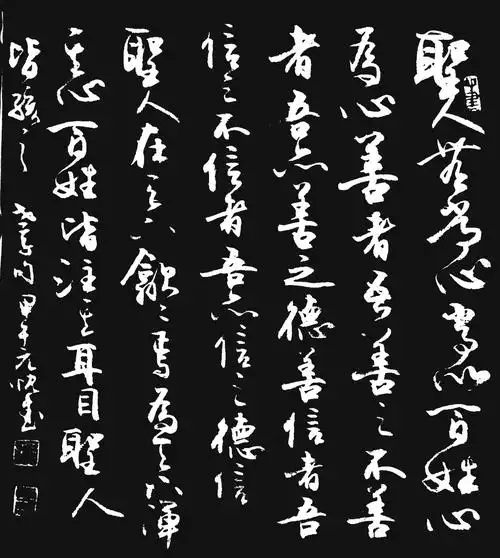 聖人無常心常以百姓心
為心善者吾善之不善
者吾亦善之德善信者吾
信之不信者吾亦信之德信
聖人在天下歙々焉為天下渾
其心百姓皆注其耳目聖人
皆孩之 老子句 甲午 書